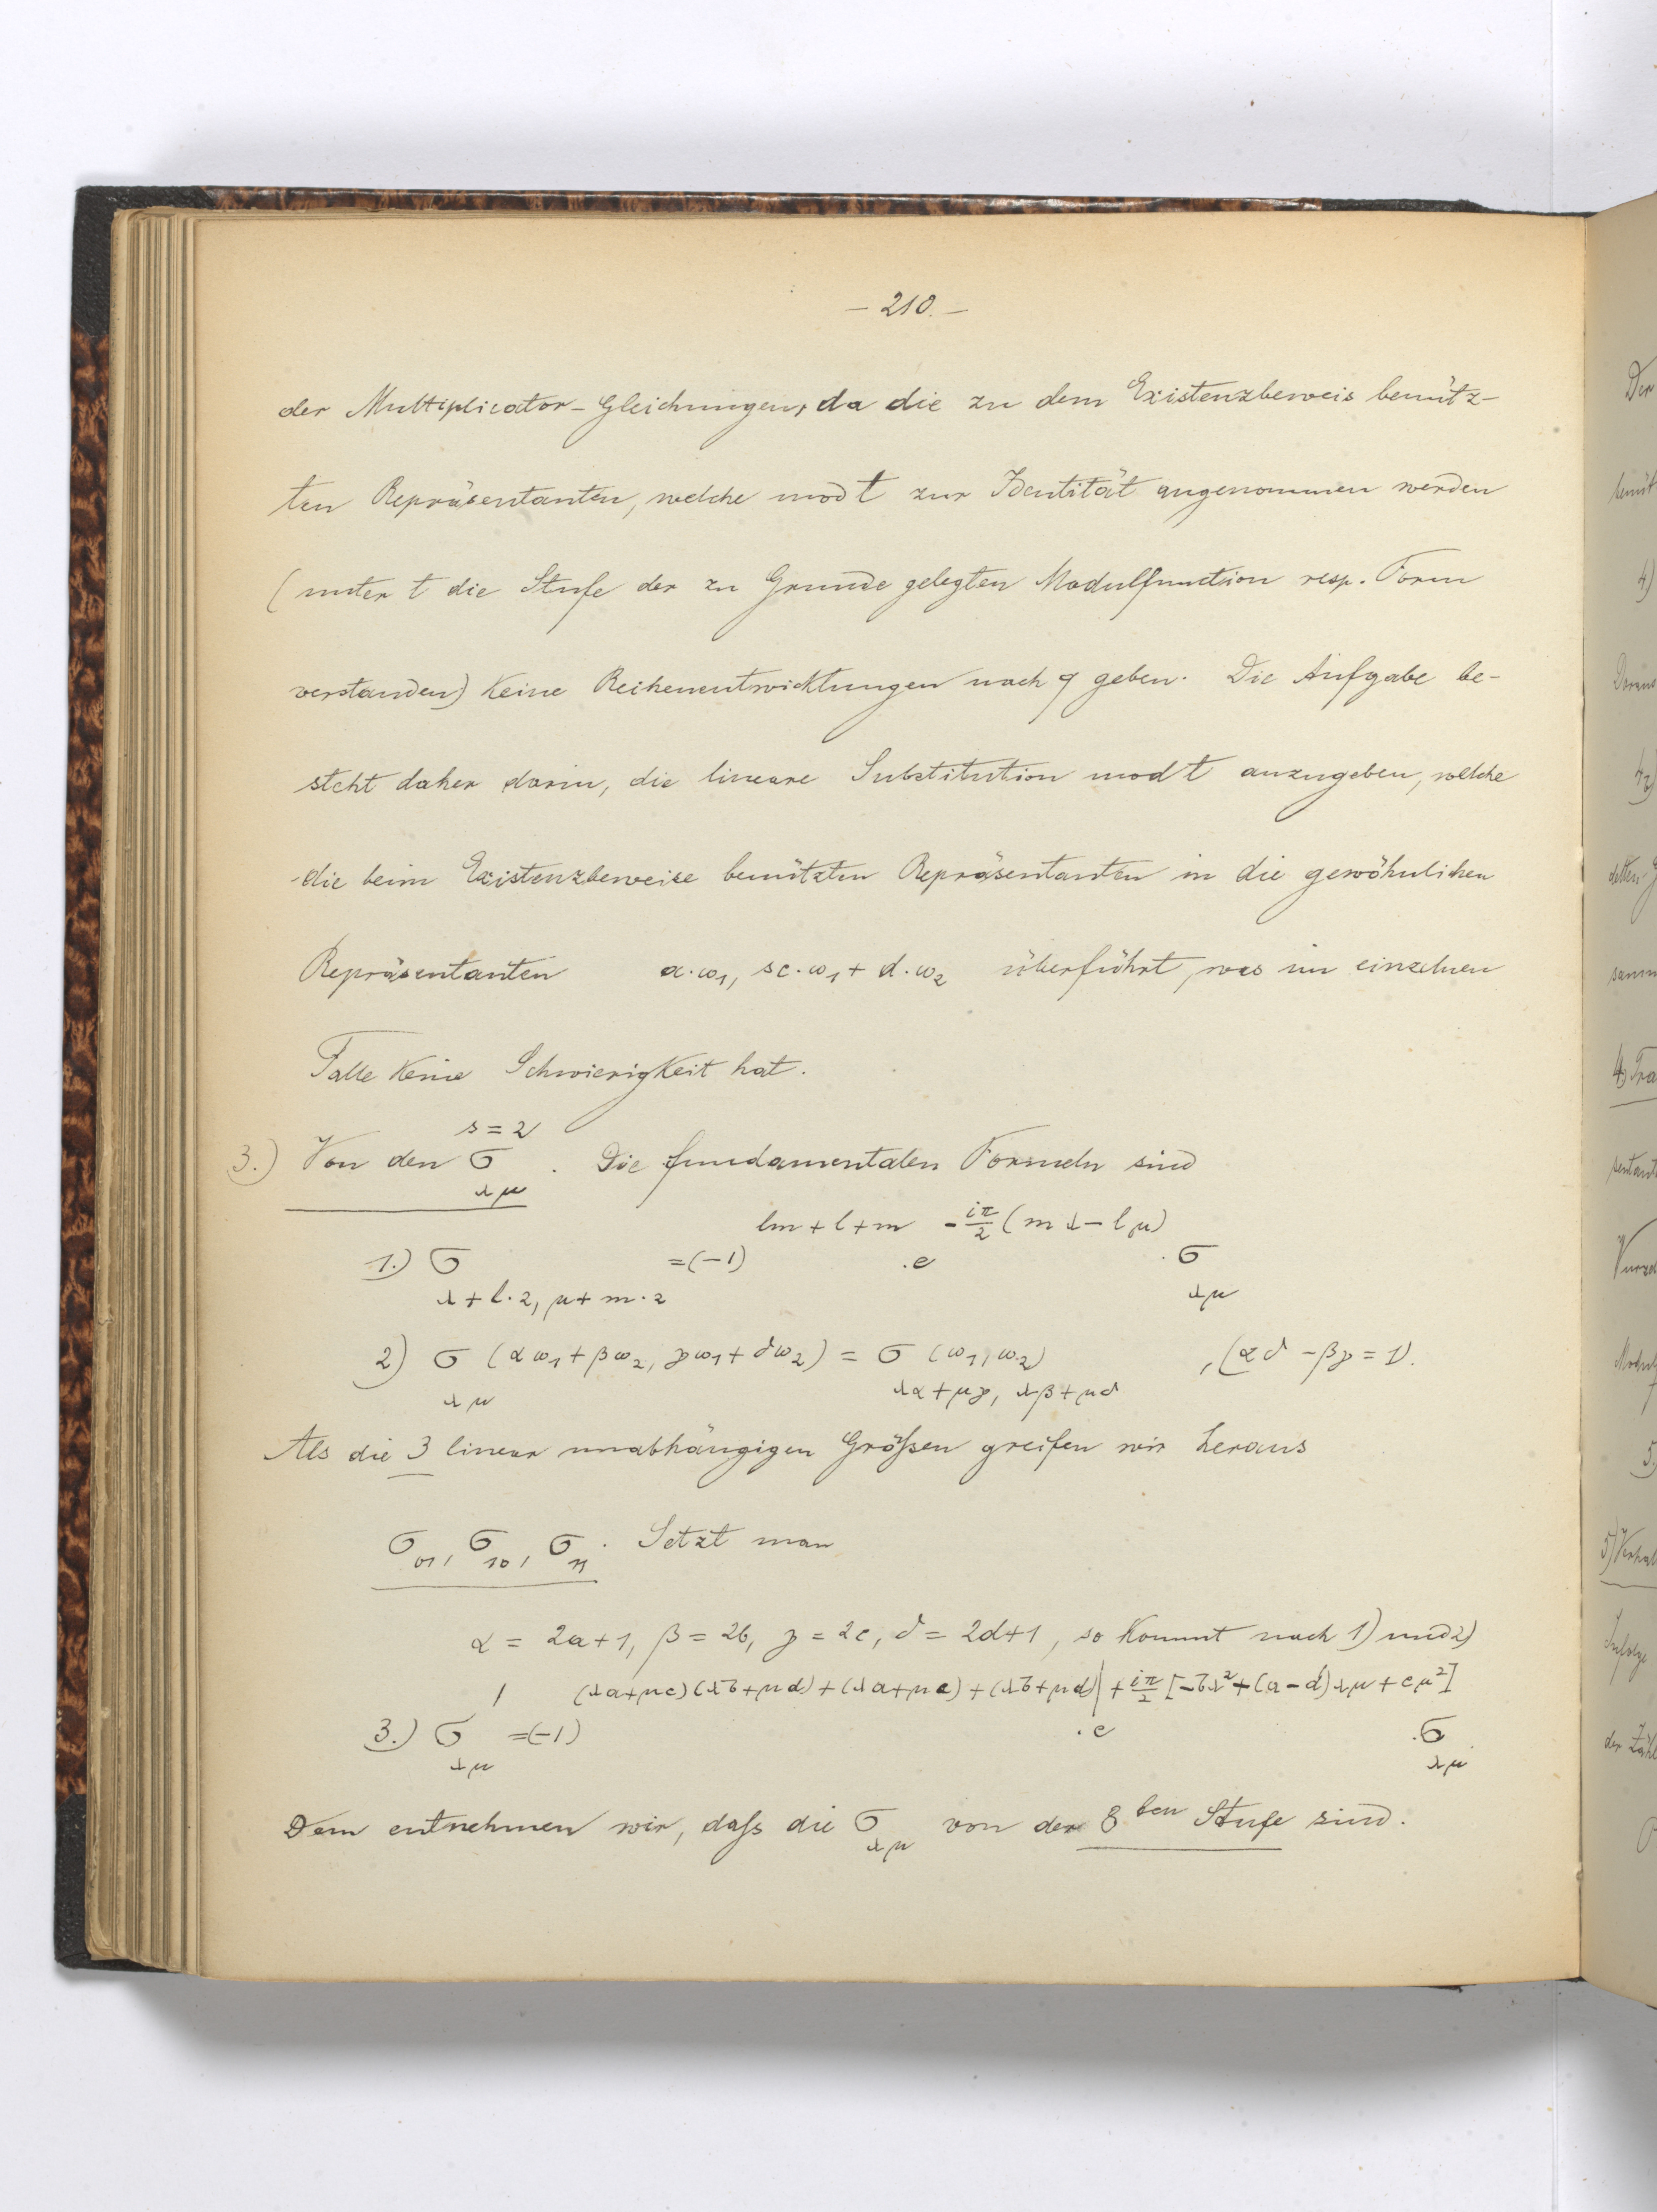 – 210. –
der Multiplicator-Gleichungen, da die zu dem Existenzbeweis benütz-
ten Repräsentanten, welche mod t zur Identität angenommen werden
(unter t die Stufe der zu Grunde gelegten Modulfunction resp. Form
verstanden) keine Reihenentwicklungen nach q geben. Die Aufgabe be-
steht daher darin, die lineare Substitution mod t anzugeben, welche
die beim Existenzbeweise benützten Repräsentanten in die gewöhnlichen
Repräsentanten a·ω₁, sc·ω₁ + d·ω₂ überführt, was im einzelnen
Falle keine Schwierigkeit hat.
s = 2
3.) Von den σ_λμ. Die fundamentalen Formeln sind
1.) σ_{λ+l·2, μ+m·2} = (−1)^{lm+l+m} · e^{−iπ/2 (mλ−lμ)} · σ_λμ
2) σ_λμ (αω₁ + βω₂, γω₁ + δω₂) = σ_{λα+μγ, λβ+μδ} (ω₁, ω₂) , (αδ − βγ = 1).
Als die 3 linear unabhängigen Größen greifen wir heraus
σ₀₁, σ₁₀, σ₁₁. Setzt man
α = 2a+1, β = 2b, γ = 2c, δ = 2d+1, so kommt nach 1) und 2)
3.) σ'_λμ = (−1)^{(λa+μc)(λb+μd)+(λa+μc)+(λb+μd)} · e^{+iπ/2 [−bλ²+(a−d)λμ+cμ²]} · σ_λμ
Dem entnehmen wir, daſs die σ_λμ von der 8ten Stufe sind.